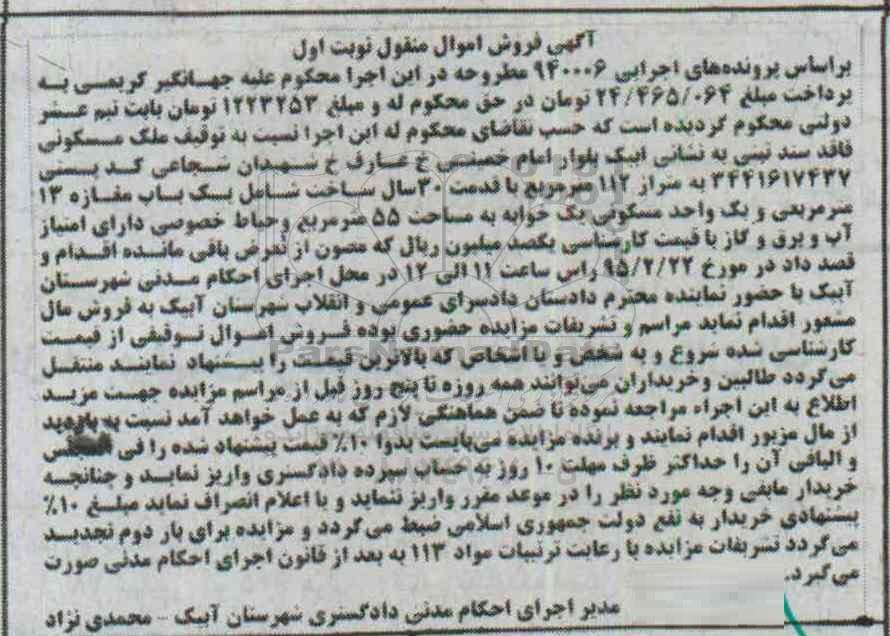 آگهی فروش اموال منقول نوبت اول
براساس پرونده‌های اجرایی ۹۴۰۰۰۶ مطروحه در این اجرا محکوم علیه جهانگیر کریمی به
پرداخت مبلغ ۲۴/۴۶۵/۰۶۴ تومان در حق محکوم له و مبلغ ۱۲۲۳۲۵۳ تومان بابت نیم عشر
دولتی محکوم گردیده است که حسب تقاضای محکوم له این اجرا نسبت به توقیف ملک مسکونی
فاقد سند ثبتی به نشانی آبیک بلوار امام خمینی خ عارف خ شهیدان شجاعی کد پستی
۳۴۴۱۶۱۷۴۳۷ به متراژ ۱۱۲ مترمربع با قدمت ۳۰سال ساخت شامل یک باب مغازه ۱۳
مترمربعی و یک واحد مسکونی یک خوابه به مساحت ۵۵ مترمربع وحیاط خصوصی دارای امتیاز
آب و برق و گاز با قیمت کارشناسی یکصد میلیون ریال که مصون از تعرض باقی مانده اقدام و
قصد داد در مورخ ۹۵/۲/۲۲ راس ساعت ۱۱ الی ۱۲ در محل اجرای احکام مدنی شهرستان
آبیک با حضور نماینده محترم دادستان دادسرای عمومی و انقلاب شهرستان آبیک به فروش مال
مشعور اقدام نماید مراسم و تشریفات مزایده حضوری بوده فروش اموال توقیفی از قیمت
کارشناسی شده شروع و به شخص و یا اشخاص که بالاترین قیمت را پیشنهاد نمایند منتقل
می‌گردد طالبین وخریداران می‌توانند همه روزه تا پنج روز قبل از مراسم مزایده جهت مزید
اطلاع به این اجراء مراجعه نموده تا ضمن هماهنگی لازم که به عمل خواهد آمد نسبت به بازدید
از مال مزبور اقدام نمایند و برنده مزایده می‌بایست بدوا ۱۰٪ قیمت پیشنهاد شده را فی المجلس
و الباقی آن را حداکثر ظرف مهلت ۱۰ روز به حساب سپرده دادگستری واریز نماید و چنانچه
خریدار مابقی وجه مورد نظر را در موعد مقرر واریز ننماید و یا اعلام انصراف نماید مبلغ ۱۰٪
پیشنهادی خریدار به نفع دولت جمهوری اسلامی ضبط می‌گردد و مزایده برای بار دوم تجدید
می‌گردد تشریفات مزایده با رعایت ترتیبات مواد ۱۱۳ به بعد از قانون اجرای احکام مدنی صورت
می‌گیرد.
مدیر اجرای احکام مدنی دادگستری شهرستان آبیک - محمدی نژاد